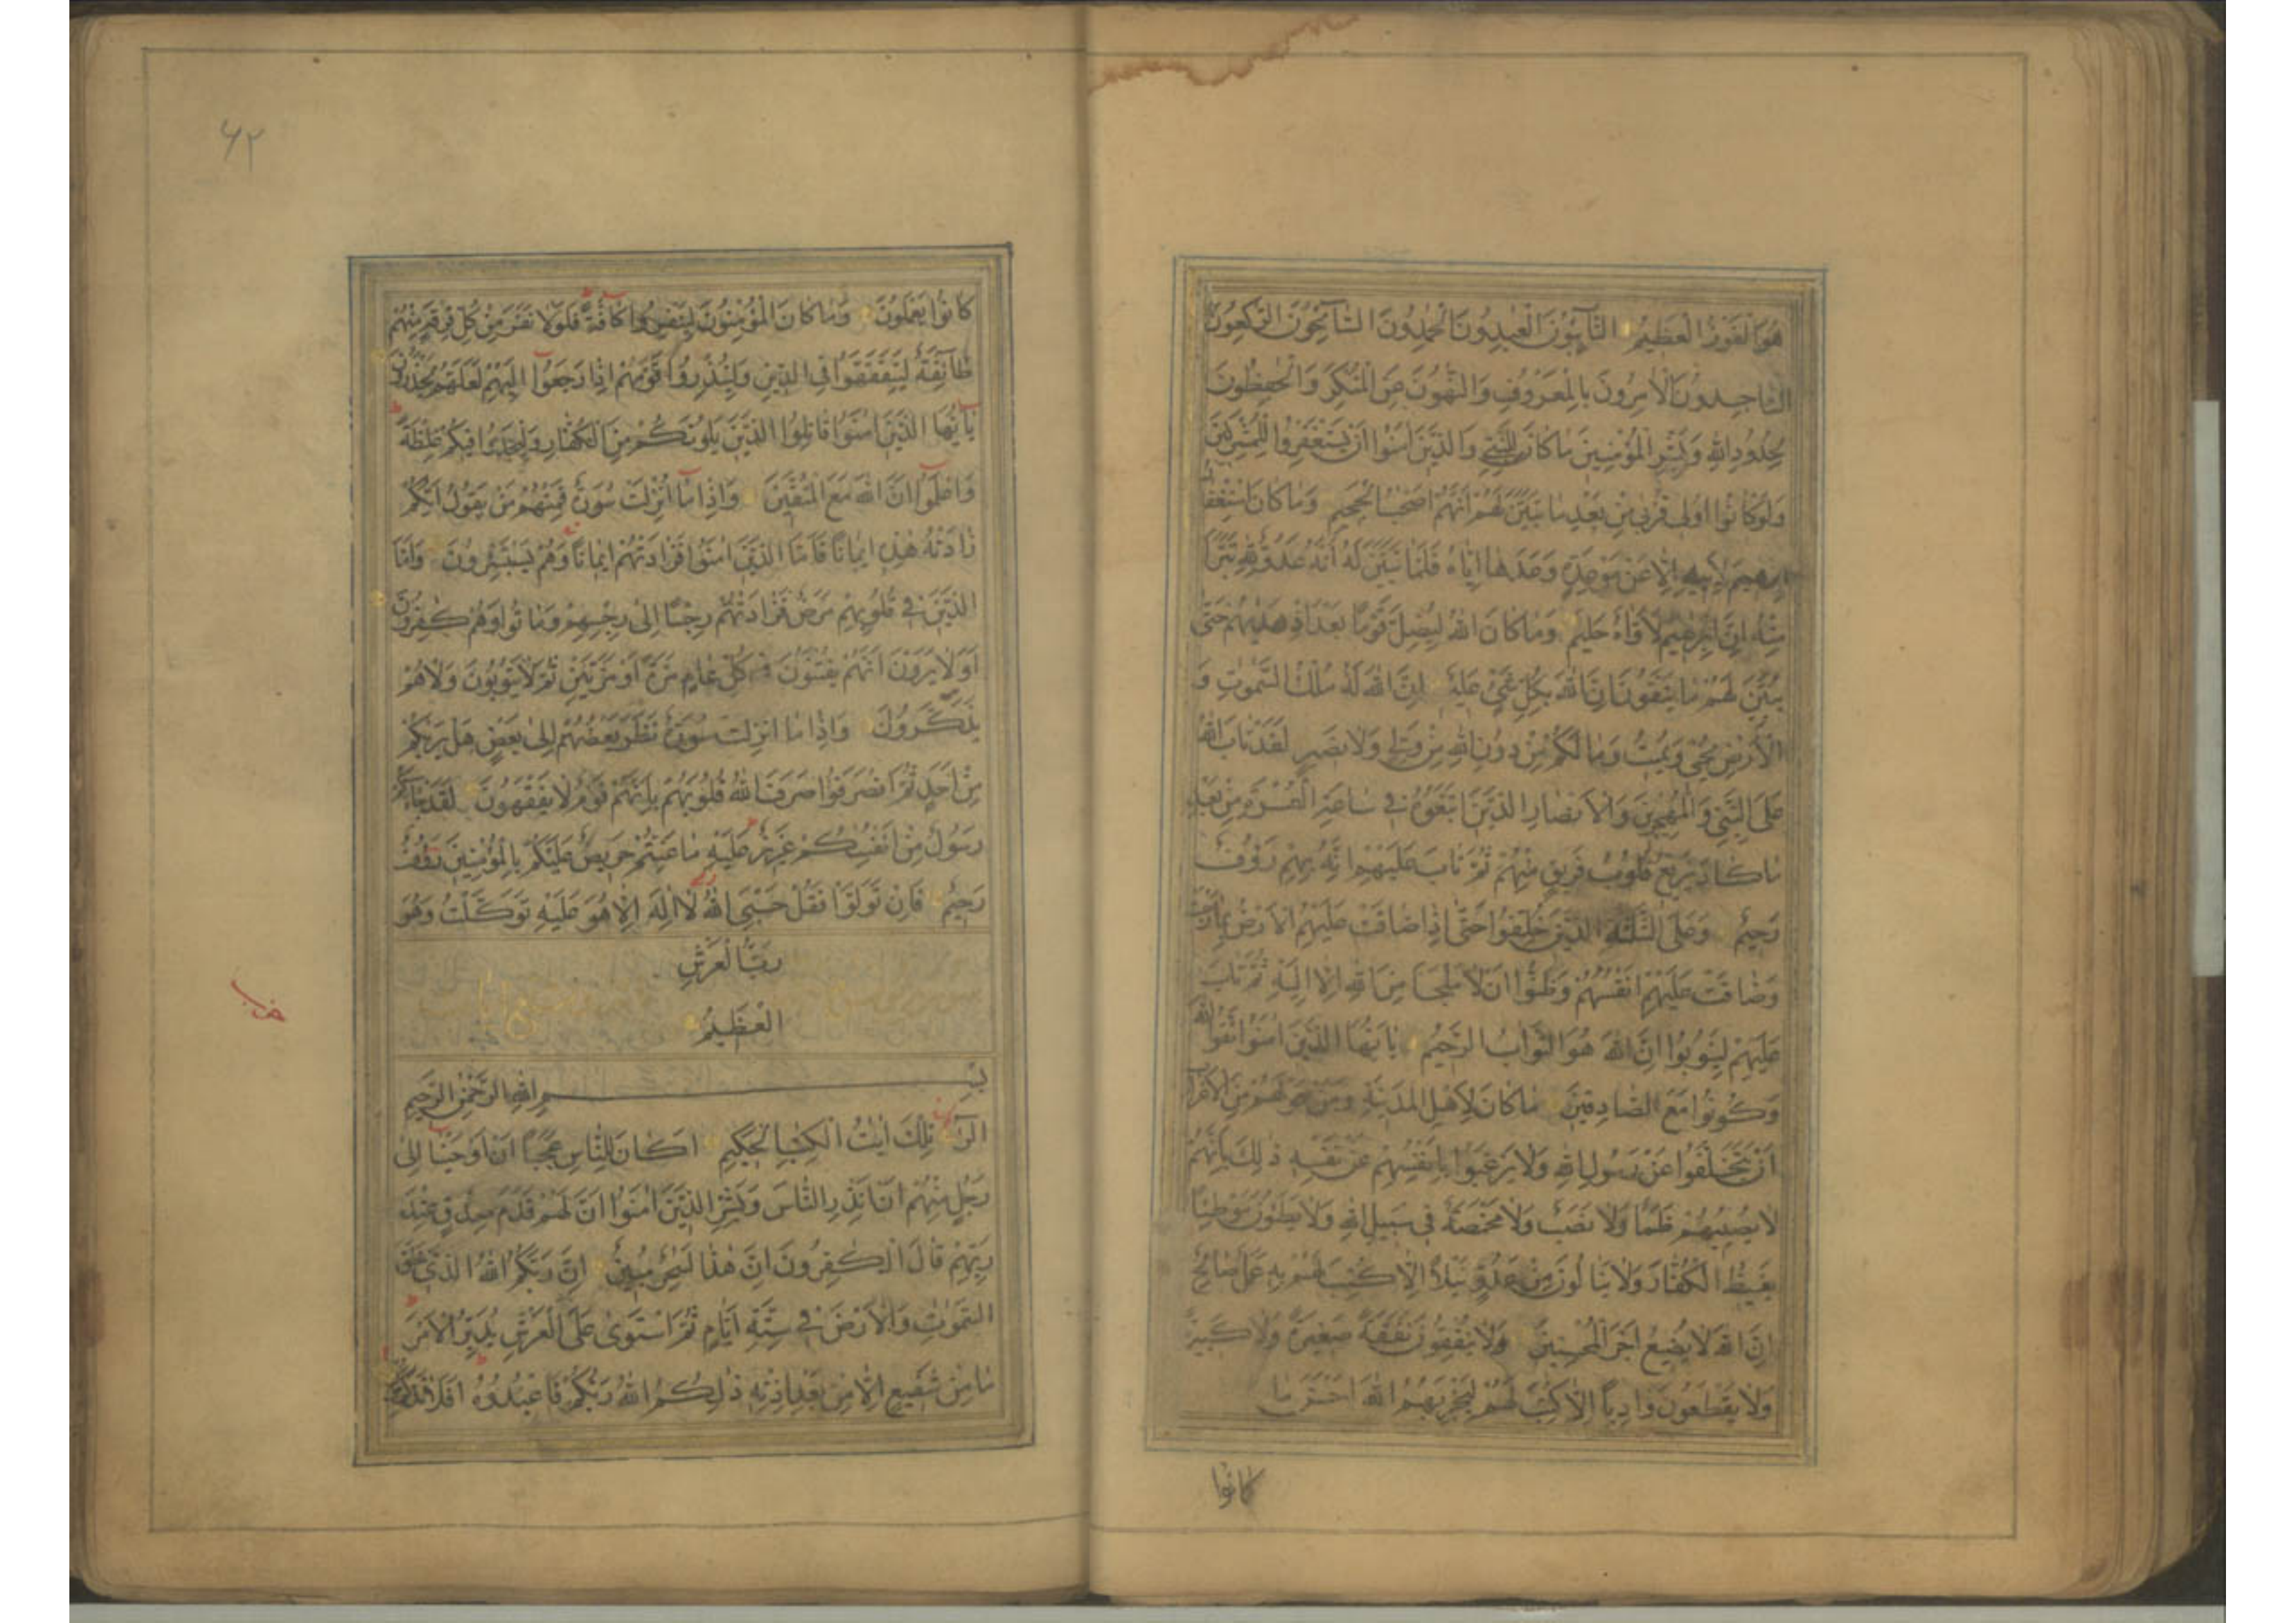 هُوَ الْفَوْزُ الْعَظِيمُ التَّآئِبُونَ الْعٰبِدُونَ الْحٰمِدُونَ السَّآئِحُونَ الرّٰكِعُونَ
السَّاجِدُونَ الْاٰمِرُونَ بِالْمَعْرُوفِ وَالنَّاهُونَ عَنِ الْمُنْكَرِ وَالْحٰفِظُونَ
لِحُدُودِ اللّٰهِ وَبَشِّرِ الْمُؤْمِنِينَ مَا كَانَ لِلنَّبِيِّ وَالَّذِينَ اٰمَنُوا اَنْ يَسْتَغْفِرُوا لِلْمُشْرِكِينَ
وَلَوْ كَانُوا اُولِى قُرْبٰى مِنْ بَعْدِ مَا تَبَيَّنَ لَهُمْ اَنَّهُمْ اَصْحٰبُ الْجَحِيمِ وَمَا كَانَ اسْتِغْفَارُ
اِبْرٰهِيمَ لِاَبِيهِ اِلَّا عَنْ مَوْعِدَةٍ وَعَدَهَا اِيَّاهُ فَلَمَّا تَبَيَّنَ لَهُ اَنَّهُ عَدُوٌّ لِلّٰهِ تَبَرَّاَ
مِنْهُ اِنَّ اِبْرٰهِيمَ لَاَوَّاهٌ حَلِيمٌ وَمَا كَانَ اللّٰهُ لِيُضِلَّ قَوْمًا بَعْدَ اِذْ هَدٰيهُمْ حَتّٰى
يُبَيِّنَ لَهُمْ مَا يَتَّقُونَ اِنَّ اللّٰهَ بِكُلِّ شَىْءٍ عَلِيمٌ اِنَّ اللّٰهَ لَهُ مُلْكُ السَّمٰوٰتِ وَ
الْاَرْضِ يُحْيِى وَيُمِيتُ وَمَا لَكُمْ مِنْ دُونِ اللّٰهِ مِنْ وَلِىٍّ وَلَا نَصِيرٍ لَقَدْ تَابَ اللّٰهُ
عَلَى النَّبِىِّ وَالْمُهٰجِرِينَ وَالْاَنْصَارِ الَّذِينَ اتَّبَعُوهُ فِى سَاعَةِ الْعُسْرَةِ مِنْ بَعْدِ
مَا كَادَ يَزِيغُ قُلُوبُ فَرِيقٍ مِنْهُمْ ثُمَّ تَابَ عَلَيْهِمْ اِنَّهُ بِهِمْ رَؤُفٌ
رَحِيمٌ وَعَلَى الثَّلٰثَةِ الَّذِينَ خُلِّفُوا حَتّٰى اِذَا ضَاقَتْ عَلَيْهِمُ الْاَرْضُ بِمَا رَحُبَتْ
وَضَاقَتْ عَلَيْهِمْ اَنْفُسُهُمْ وَظَنُّوا اَنْ لَا مَلْجَاَ مِنَ اللّٰهِ اِلَّا اِلَيْهِ ثُمَّ تَابَ
عَلَيْهِمْ لِيَتُوبُوا اِنَّ اللّٰهَ هُوَ التَّوَّابُ الرَّحِيمُ يَا اَيُّهَا الَّذِينَ اٰمَنُوا اتَّقُوا اللّٰهَ
وَكُونُوا مَعَ الصَّادِقِينَ مَا كَانَ لِاَهْلِ الْمَدِينَةِ وَمَنْ حَوْلَهُمْ مِنَ الْاَعْرَابِ
اَنْ يَتَخَلَّفُوا عَنْ رَسُولِ اللّٰهِ وَلَا يَرْغَبُوا بِاَنْفُسِهِمْ عَنْ نَفْسِهِ ذٰلِكَ بِاَنَّهُمْ
لَا يُصِيبُهُمْ ظَمَاٌ وَلَا نَصَبٌ وَلَا مَخْمَصَةٌ فِى سَبِيلِ اللّٰهِ وَلَا يَطَؤُنَ مَوْطِئًا
يَغِيظُ الْكُفَّارَ وَلَا يَنَالُونَ مِنْ عَدُوٍّ نَيْلًا اِلَّا كُتِبَ لَهُمْ بِهِ عَمَلٌ صَالِحٌ
اِنَّ اللّٰهَ لَا يُضِيعُ اَجْرَ الْمُحْسِنِينَ وَلَا يُنْفِقُونَ نَفَقَةً صَغِيرَةً وَلَا كَبِيرَةً
وَلَا يَقْطَعُونَ وَادِيًا اِلَّا كُتِبَ لَهُمْ لِيَجْزِيَهُمُ اللّٰهُ اَحْسَنَ مَا
كانوا
۶۲
كَانُوا يَعْمَلُونَ وَمَا كَانَ الْمُؤْمِنُونَ لِيَنْفِرُوا كَآفَّةً فَلَوْلَا نَفَرَ مِنْ كُلِّ فِرْقَةٍ مِنْهُمْ
طَآئِفَةٌ لِيَتَفَقَّهُوا فِى الدِّينِ وَلِيُنْذِرُوا قَوْمَهُمْ اِذَا رَجَعُوا اِلَيْهِمْ لَعَلَّهُمْ يَحْذَرُونَ
يَا اَيُّهَا الَّذِينَ اٰمَنُوا قَاتِلُوا الَّذِينَ يَلُونَكُمْ مِنَ الْكُفَّارِ وَلْيَجِدُوا فِيكُمْ غِلْظَةً
وَاعْلَمُوا اَنَّ اللّٰهَ مَعَ الْمُتَّقِينَ وَاِذَا مَا اُنْزِلَتْ سُورَةٌ فَمِنْهُمْ مَنْ يَقُولُ اَيُّكُمْ
زَادَتْهُ هٰذِهِ اِيمَانًا فَاَمَّا الَّذِينَ اٰمَنُوا فَزَادَتْهُمْ اِيمَانًا وَهُمْ يَسْتَبْشِرُونَ وَاَمَّا
الَّذِينَ فِى قُلُوبِهِمْ مَرَضٌ فَزَادَتْهُمْ رِجْسًا اِلٰى رِجْسِهِمْ وَمَاتُوا وَهُمْ كٰفِرُونَ
اَوَلَا يَرَوْنَ اَنَّهُمْ يُفْتَنُونَ فِى كُلِّ عَامٍ مَرَّةً اَوْ مَرَّتَيْنِ ثُمَّ لَا يَتُوبُونَ وَلَا هُمْ
يَذَّكَّرُونَ وَاِذَا مَا اُنْزِلَتْ سُورَةٌ نَظَرَ بَعْضُهُمْ اِلٰى بَعْضٍ هَلْ يَرٰيكُمْ
مِنْ اَحَدٍ ثُمَّ انْصَرَفُوا صَرَفَ اللّٰهُ قُلُوبَهُمْ بِاَنَّهُمْ قَوْمٌ لَا يَفْقَهُونَ لَقَدْ جَآءَكُمْ
رَسُولٌ مِنْ اَنْفُسِكُمْ عَزِيزٌ عَلَيْهِ مَا عَنِتُّمْ حَرِيصٌ عَلَيْكُمْ بِالْمُؤْمِنِينَ رَؤُفٌ
رَحِيمٌ فَاِنْ تَوَلَّوْا فَقُلْ حَسْبِىَ اللّٰهُ لَا اِلٰهَ اِلَّا هُوَ عَلَيْهِ تَوَكَّلْتُ وَهُوَ
رَبُّ الْعَرْشِ
الْعَظِيمِ
بِسْمِ اللّٰهِ الرَّحْمٰنِ الرَّحِيمِ
الٓرٰ تِلْكَ اٰيٰتُ الْكِتٰبِ الْحَكِيمِ اَكَانَ لِلنَّاسِ عَجَبًا اَنْ اَوْحَيْنَا اِلٰى
رَجُلٍ مِنْهُمْ اَنْ اَنْذِرِ النَّاسَ وَبَشِّرِ الَّذِينَ اٰمَنُوا اَنَّ لَهُمْ قَدَمَ صِدْقٍ عِنْدَ
رَبِّهِمْ قَالَ الْكٰفِرُونَ اِنَّ هٰذَا لَسِحْرٌ مُبِينٌ اِنَّ رَبَّكُمُ اللّٰهُ الَّذِى خَلَقَ
السَّمٰوٰتِ وَالْاَرْضَ فِى سِتَّةِ اَيَّامٍ ثُمَّ اسْتَوٰى عَلَى الْعَرْشِ يُدَبِّرُ الْاَمْرَ
مَا مِنْ شَفِيعٍ اِلَّا مِنْ بَعْدِ اِذْنِهِ ذٰلِكُمُ اللّٰهُ رَبُّكُمْ فَاعْبُدُوهُ اَفَلَا تَذَكَّرُونَ